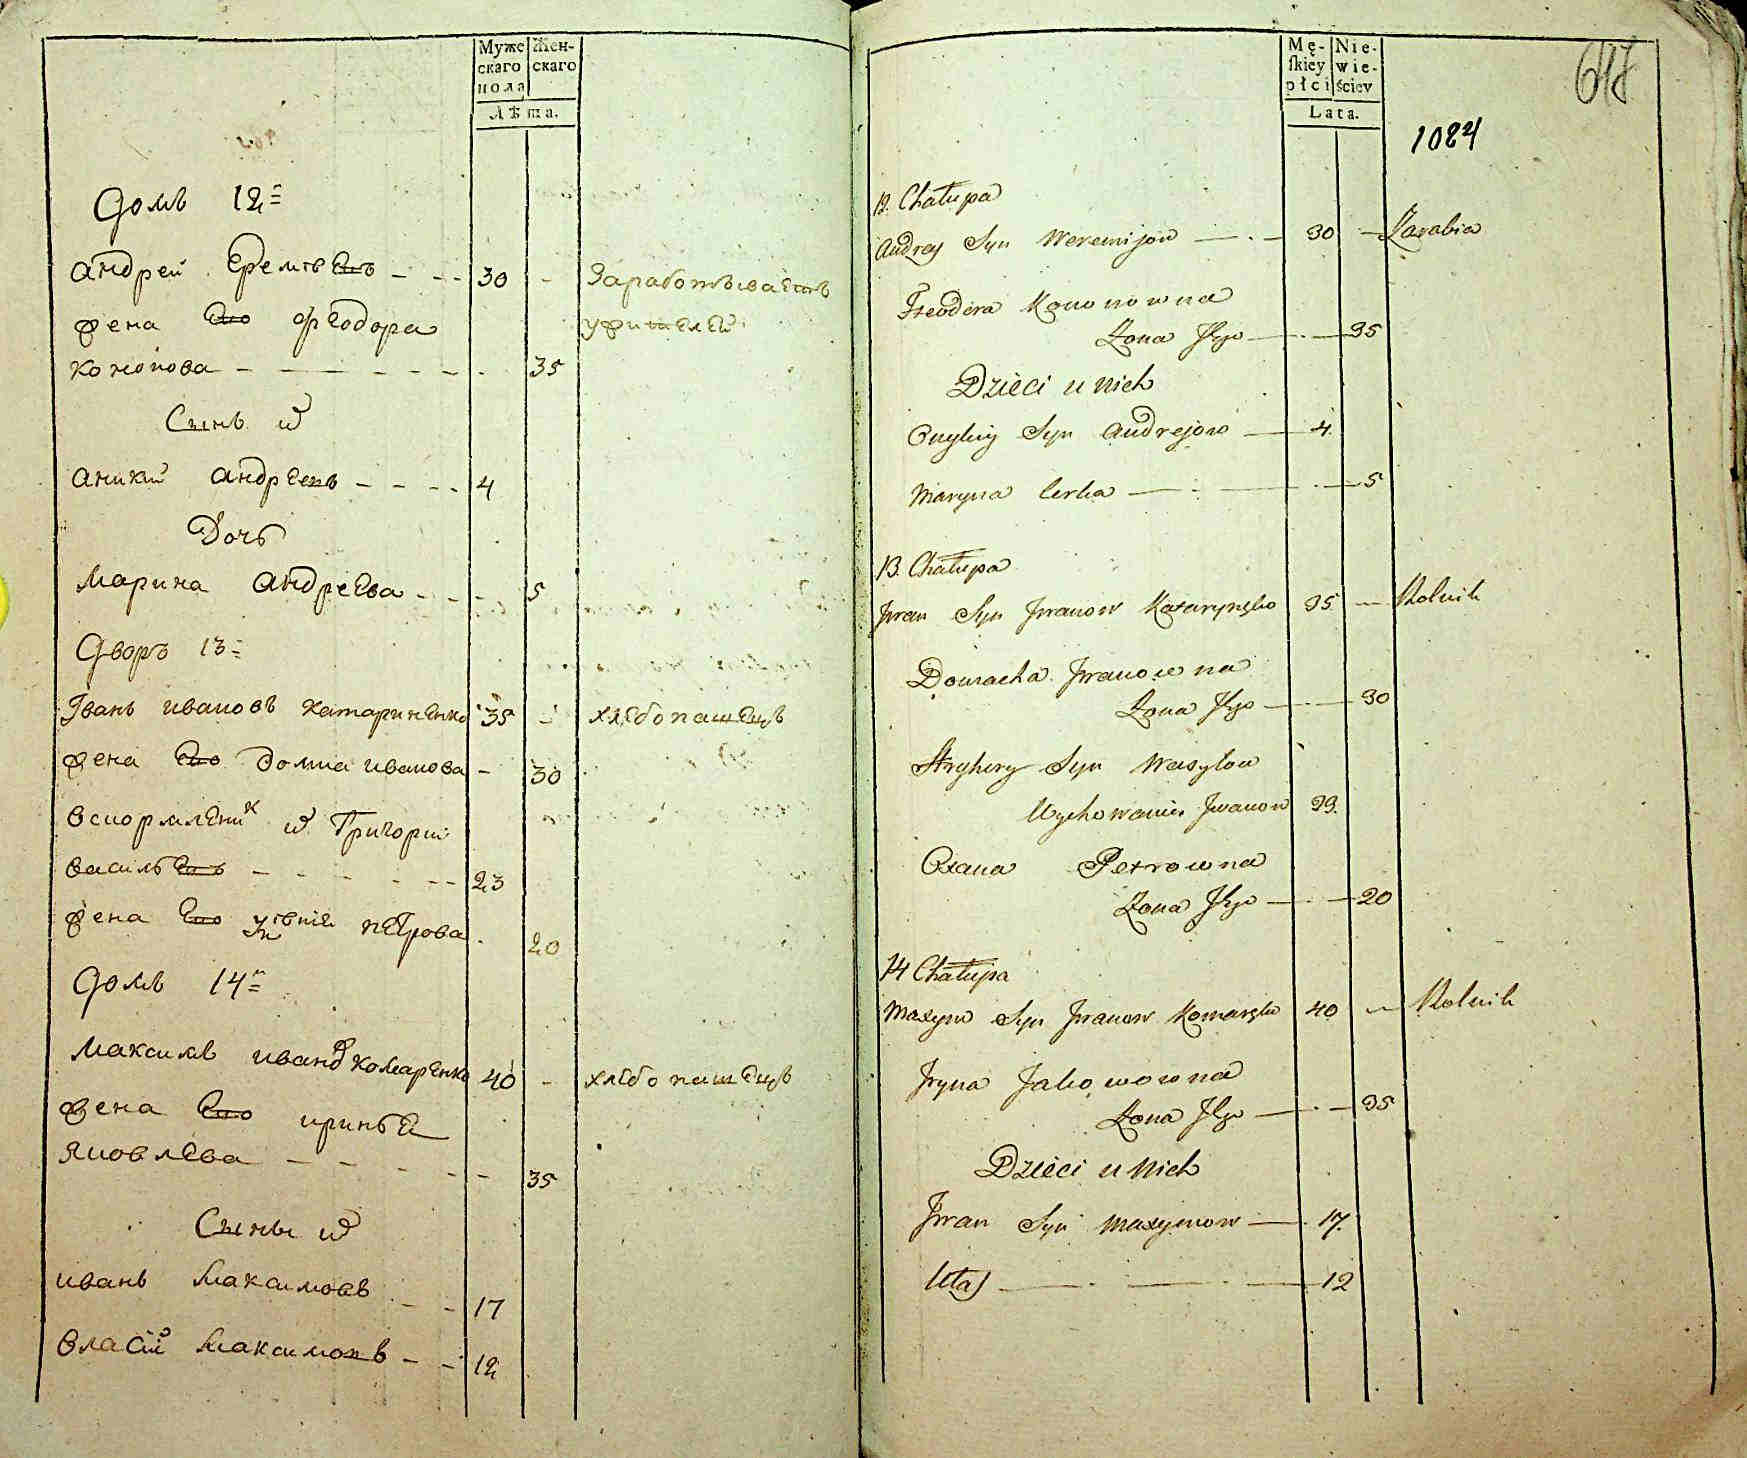 Муже
скаго
пола
Жен-
скаго
Лѣта.
Домъ 12=
Андрей Еремѣевъ - - - 30 -
жена Его Феодора
Кононова - - - - - - 35
Сынъ
Аникий Андреевъ - - - - 4
Дочь
Марина Андреева - - - 5
Дворъ 13=
Іванъ Ивановъ Катариненко 35 - хлебопашецъ
жена Его Домна Иванова - 30
Григорий
Васильевъ - - - - - - 23
жена Его Петрова - 20
Домъ 14=
Максимъ Иванов Комаренко 40 - хлебопашецъ
жена Его
Яковлева - - - - - - 35
Сыны
Иванъ Максимовъ - - 17
Власий Максимовъ - - 12
Mę-
skiey
płci
Nie-
wie-
ściey
Lata.
1084
12. Chałupa
Andrey Syn Weremijow - 30 - Zarabia
Fieodora Kononowna
Żona Jego - 35
Dzieci u Nich
Syn Andrejow - 4
Maryna Corka - 5
13. Chałupa
Jwan Syn Jwanow 35 - Rolnik
Domacha Jwanowna
Żona Jego - 30
Hryhory Syn Wasylow
Wychowaniec Jwanow 23.
Oxana Petrowna
Żona Jego - 20
14 Chałupa
Maxym Syn Jwanow 40 - Rolnik
Jryna Jakowowna
Żona Jego - 35
Dzieci u Nich
Jwan Syn Maxymow - 17.
Ułas - 12